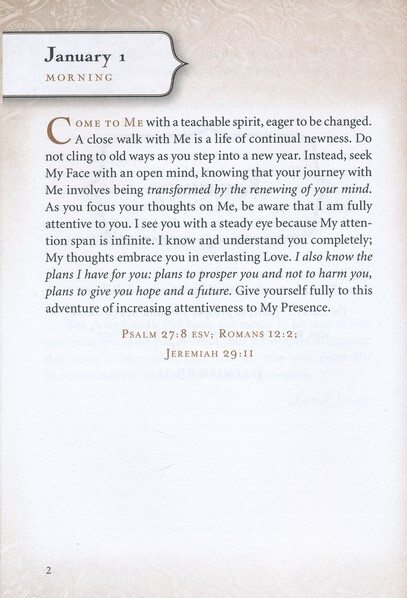 January 1
MORNING
COME TO ME with a teachable spirit, eager to be changed.
A close walk with Me is a life of continual newness. Do
not cling to old ways as you step into a new year. Instead, seek
My Face with an open mind, knowing that your journey with
Me involves being transformed by the renewing of your mind.
As you focus your thoughts on Me, be aware that I am fully
attentive to you. I see you with a steady eye because My atten-
tion span is infinite. I know and understand you completely;
My thoughts embrace you in everlasting Love. I also know the
plans I have for you: plans to prosper you and not to harm you,
plans to give you hope and a future. Give yourself fully to this
adventure of increasing attentiveness to My Presence.
PSALM 27:8 ESV; ROMANS 12:2;
JEREMIAH 29:11
2